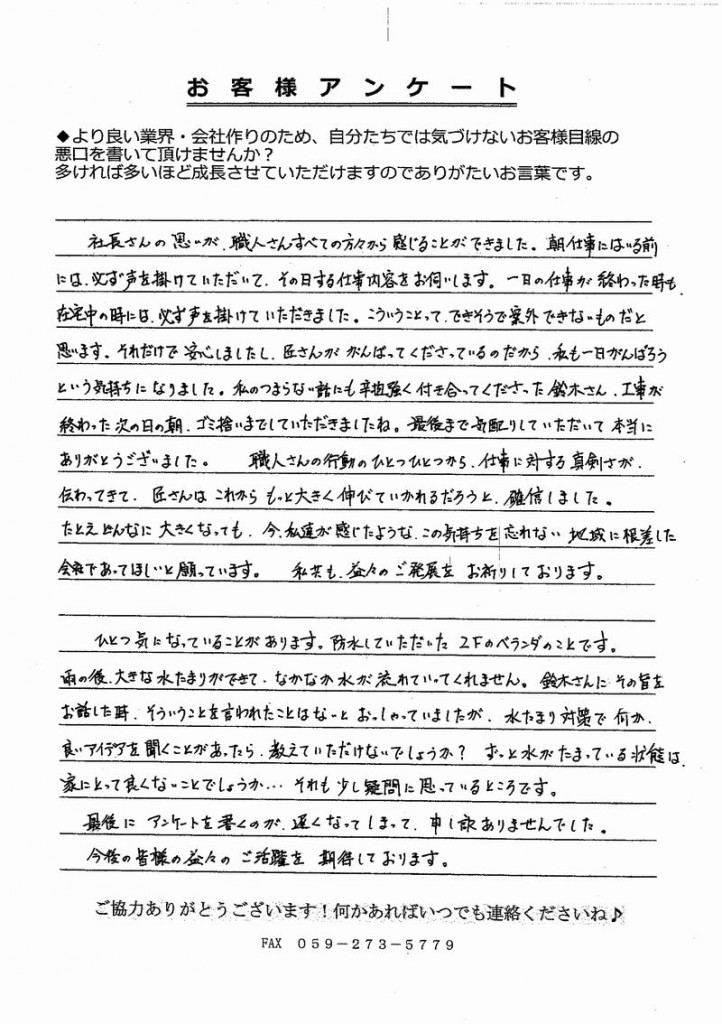 お客様アンケート
◆より良い業界・会社作りのため、自分たちでは気づけないお客様目線の
悪口を書いて頂けませんか？
多ければ多いほど成長させていただけますのでありがたいお言葉です。
社長さんの思いが、職人さんすべての方々から感じることができました。朝仕事にはいる前
には、必ず声を掛けていただいて、その日する仕事内容をお伺いします。一日の仕事が終わった時も、
在宅中の時には、必ず声を掛けていただきました。こういうことって、できそうで案外できないものだと
思います。それだけで安心しましたし、匠さんががんばってくださっているのだから、私も一日がんばろう
という気持ちになりました。私のつまらない話にも辛抱強く付き合ってくださった鈴木さん、工事が
終わった次の日の朝、ゴミ捨いまでしていただきましたね。最後まで気配りしていただいて本当に
ありがとうございました。 職人さんの行動のひとつひとつから、仕事に対する真剣さが、
伝わってきて、匠さんはこれからもっと大きく伸びていかれるだろうと、確信しました。
たとえどんなに大きくなっても、今、私達が感じたような、この気持ちを忘れない地域に根差した
会社であってほしいと願っています。 私共も、益々のご発展をお祈りしております。
ひとつ気になっていることがあります。防水していただいた2Fのベランダのことです。
雨の後、大きな水たまりができて、なかなか水が流れていってくれません。鈴木さんにその旨を
お話した時、そういうことを言われたことはないとおっしゃっていましたが、水たまり対策で何か、
良いアイデアを聞くことがあったら、教えていただけないでしょうか？ ずっと水がたまっている状態は、
家にとって良くないことでしょうか…それも少し疑問に思っているところです。
最後にアンケートを書くのが、遅くなってしまって、申し訳ありませんでした。
今後の皆様の益々のご活躍を期待しております。
ご協力ありがとうございます！何かあればいつでも連絡くださいね♪
FAX 059－273－5779